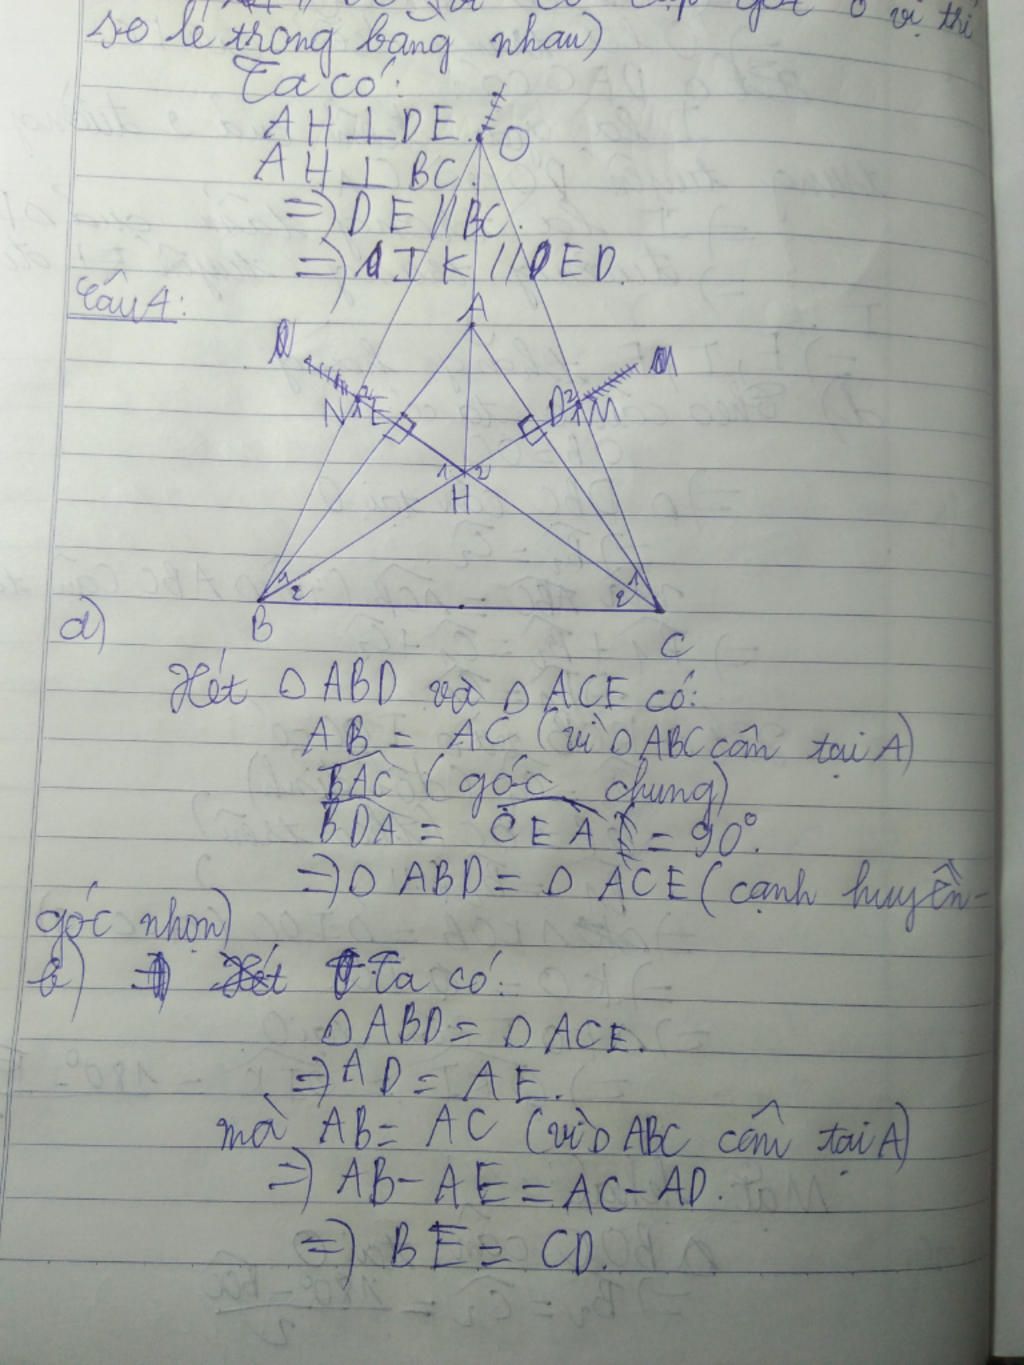 so le trong bằng nhau)
Ta có:
AH⊥DE.
AH⊥BC.
=) DE//BC.
=) IK//DED.
Câu 4:
O
A
N E D M
1 2
H
1 2 1 2
B C
a)
Xét Δ ABD và Δ ACE có:
AB = AC (vì Δ ABC cân tại A)
BAC (góc chung)
BDA = CEA = 90°.
=) Δ ABD = Δ ACE (cạnh huyền -
góc nhọn)
b) Ta có:
Δ ABD = Δ ACE.
=) AD = AE.
mà AB = AC (vì Δ ABC cân tại A)
=) AB - AE = AC - AD.
=) BE = CD.